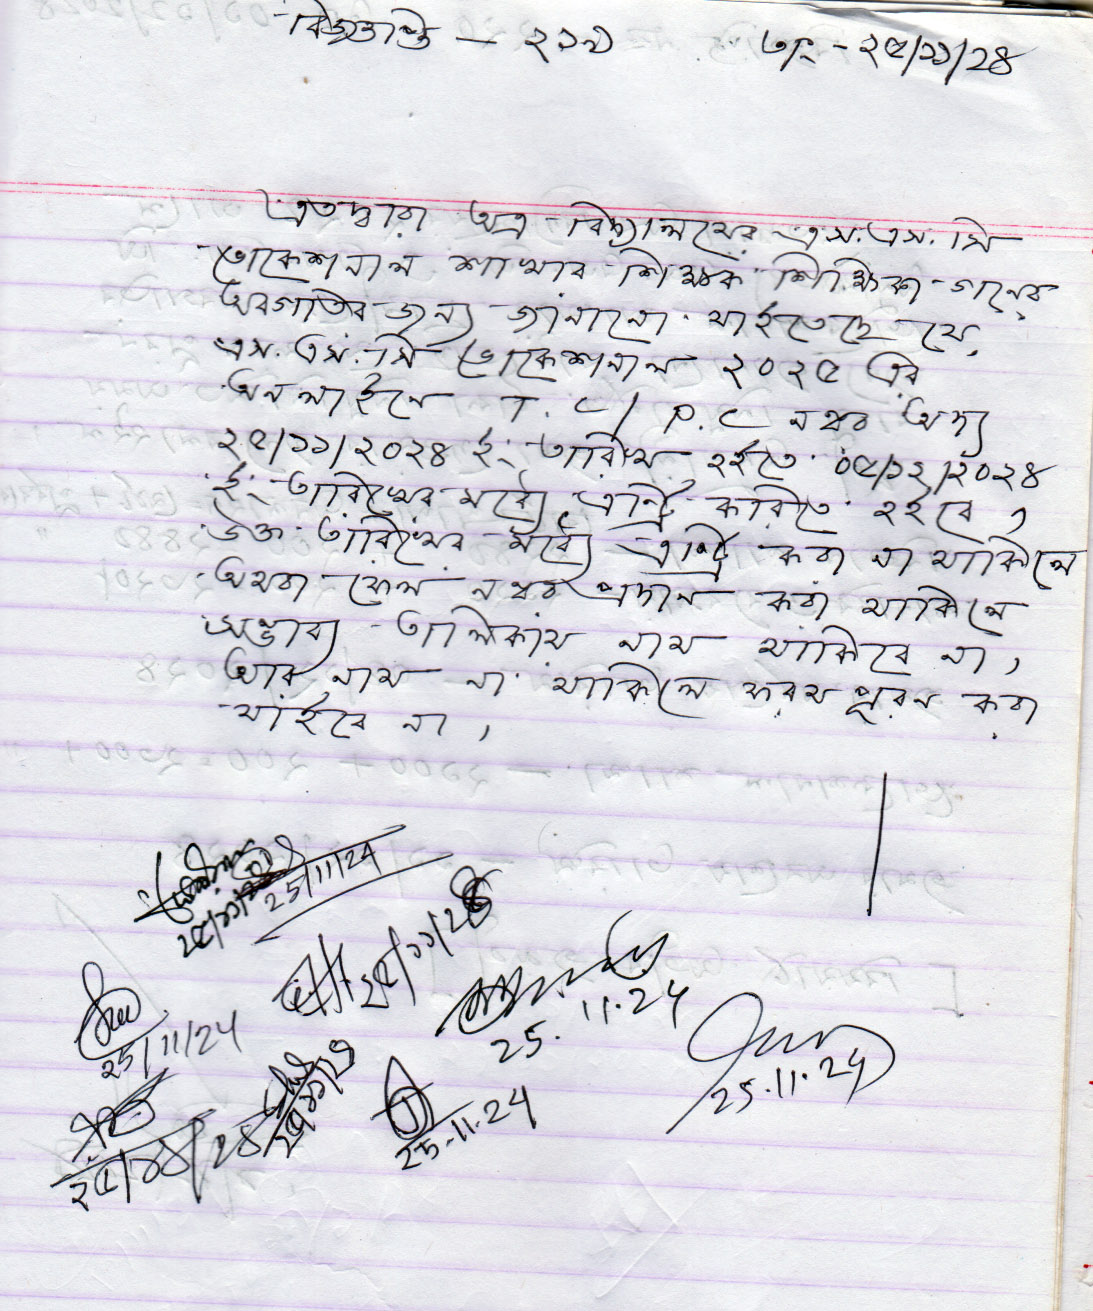 বিজ্ঞপ্তি — ২১৩ তাং - ২৫/১১/২৪
এতদ্বারা অত্র বিদ্যালয়ের এস.এস.সি
ভোকেশনাল শাখার শিক্ষক শিক্ষিকা গনের
অবগতির জন্য জানানো যাইতেছে যে,
এস.এস.সি ভোকেশনাল ২০২৫ এর
অনলাইনে T.C/P.C নম্বর অদ্য
২৫/১১/২০২৪ ইং তারিখ হইতে ০৫/১২/২০২৪
ইং তারিখের মধ্যে এন্ট্রি করিতে হইবে,
উক্ত তারিখের মধ্যে এন্ট্রি করা না থাকিলে
অথবা ফেল নম্বর প্রদান করা থাকিলে
সম্ভাব্য তালিকায় নাম থাকিবে না,
আর নাম না থাকিলে ফরম পূরন করা
যাইবে না,
25/11/24
২৫/১১/২৪
25/11/24
25.11.24
25.11.24
25.11.24